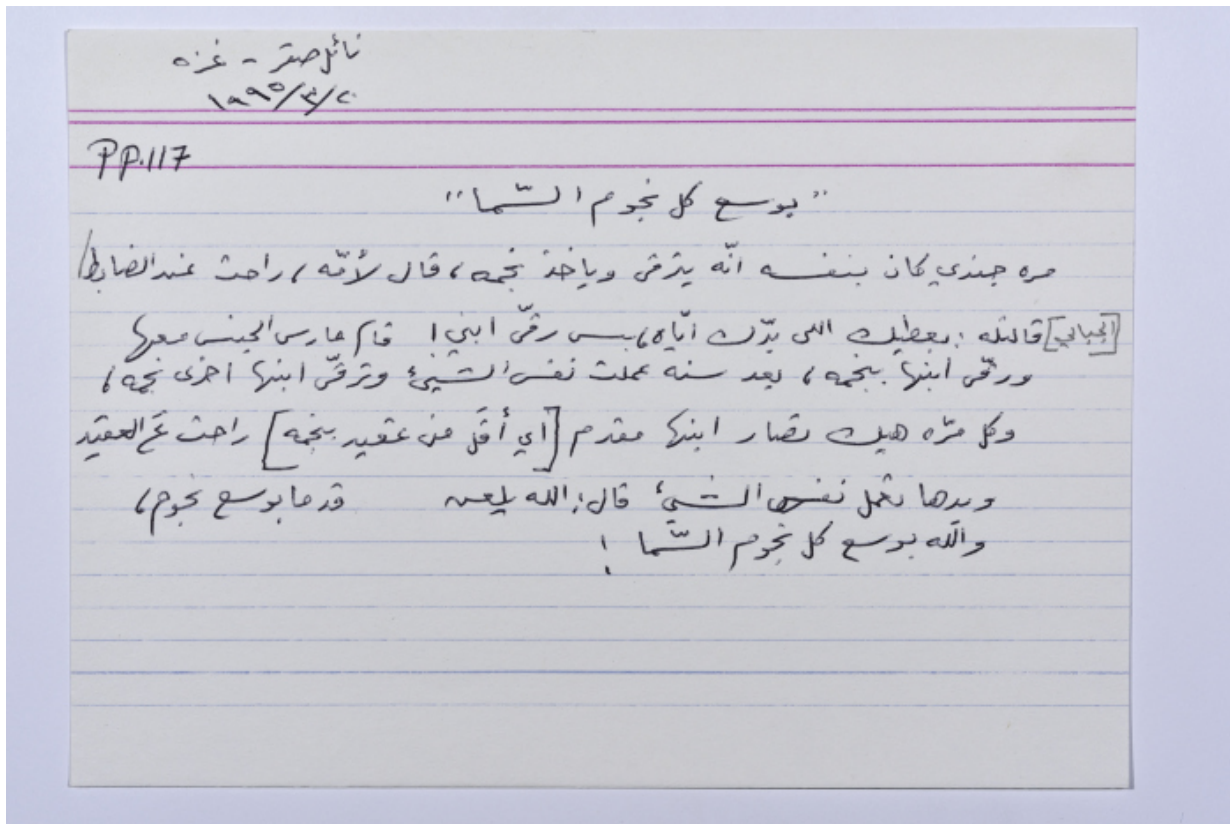 نائل صقر - غزه
٢٠/٣/١٩٩٥
PP.117
"بوسع كل نجوم السّما"
مره جندي كان بنفسه انّه يترقى وياخذ نجمه، قال لأمّه، راحت عند الضابط
[الجبالي] قالتله: بعطيك اللى بدّك ايّاه، بس رقّي ابني! قام مارس الجنس معها
ورقّى ابنها بنجمه، بعد سنه عملت نفس الشيئ وترقّى ابنها اخرى نجمه،
وكل مرّه هيك تصار ابنها مقدم [أي أقل من عقيد بنجمه] راحت عَ العقيد
وبدها تعمل نفس الشيئ قال: الله يلعن قد ما بوسع نجوم،
والله بوسع كل نجوم السّما !